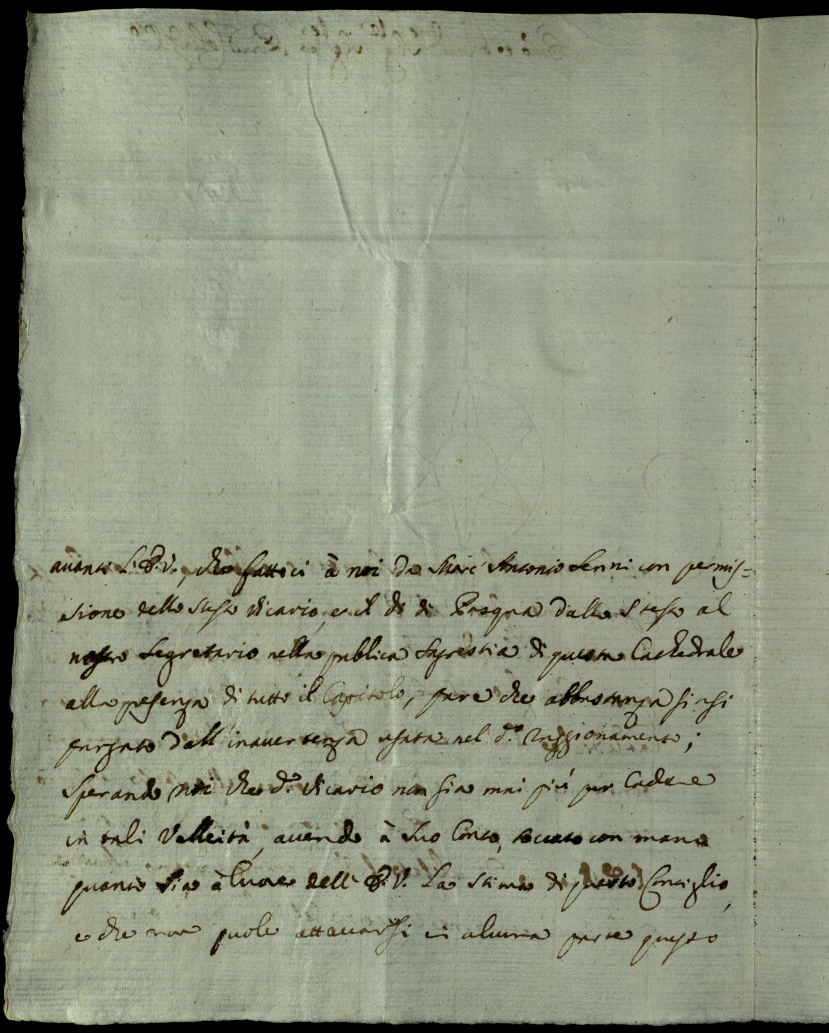 avanti L. P.V., che fattoci à noi da Marc' Antonio Senni con permis-
sione dello stesso Vicario, e il dì di Pregna dallo stesso al
nostro Segretario nella publica Sagrestia di questa Cathedrale
alla presenza di tutto il Capitolo, pare che abbastanza siasi
purgato dall'inavertenza usata nel d.º raggionamento;
Sperando noi che d.º Vicario non sia mai più per Cadere
in tali Velleità, avendo à suo Conto, toccato con mano
quanto sia à Cuore dell' P.V. La stima di questo Consiglio,
e che non puole attaccarsi in alcuna parte questo